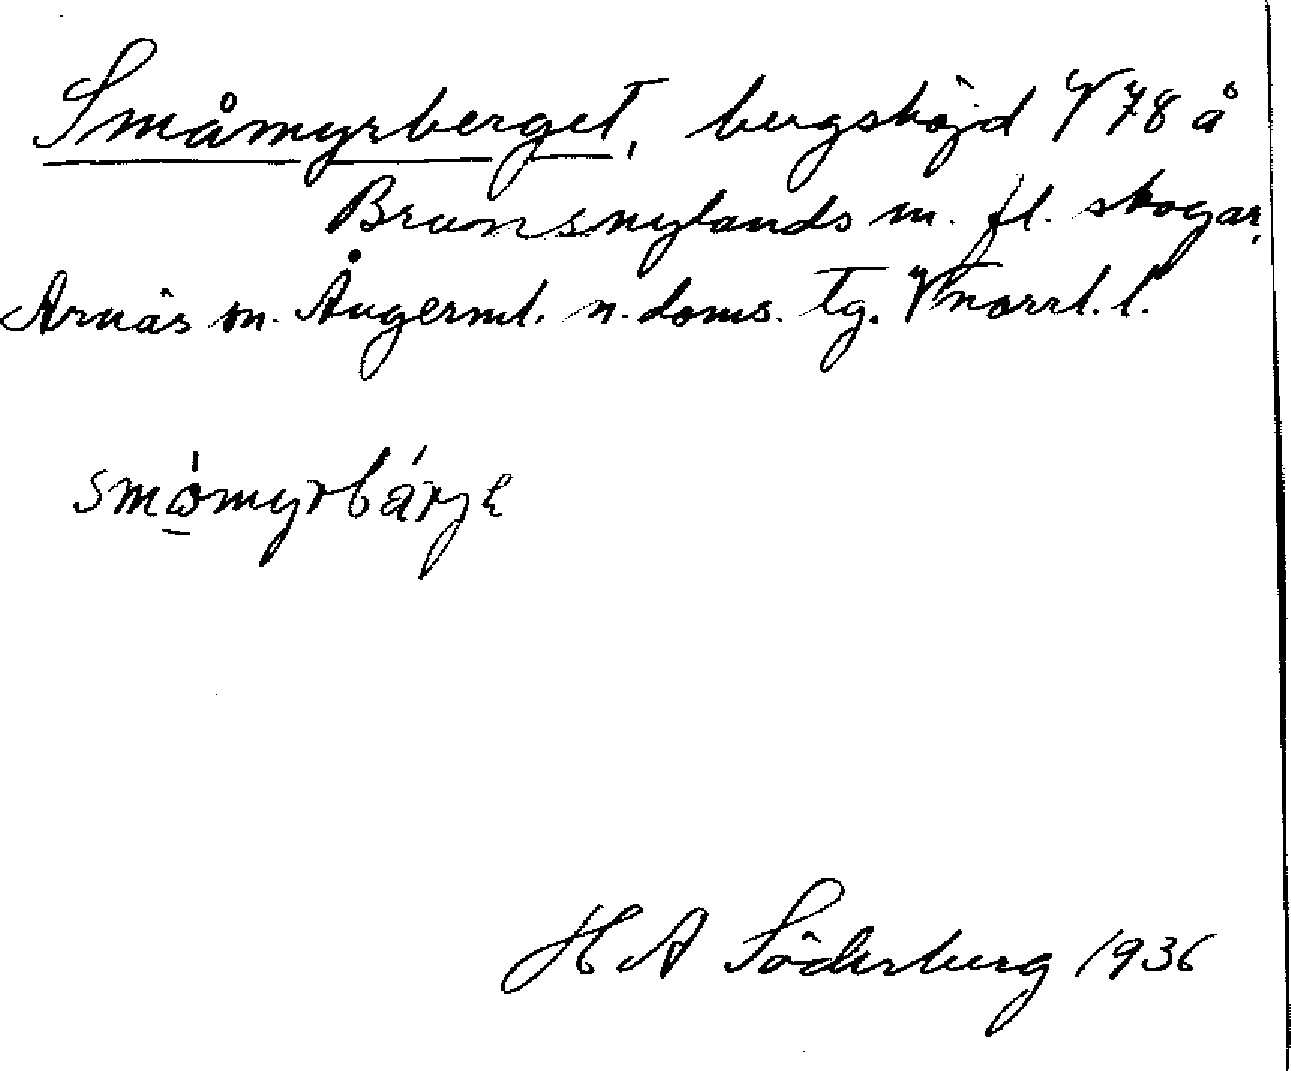 Småmyrberget, bergshöjd V 78 å
Brunsnylands m. fl. skogar,
Arnäs sn. Ångerml. n. doms. tg. Vnorrl. l.
smǻmyrbárje
H A Söderberg 1936